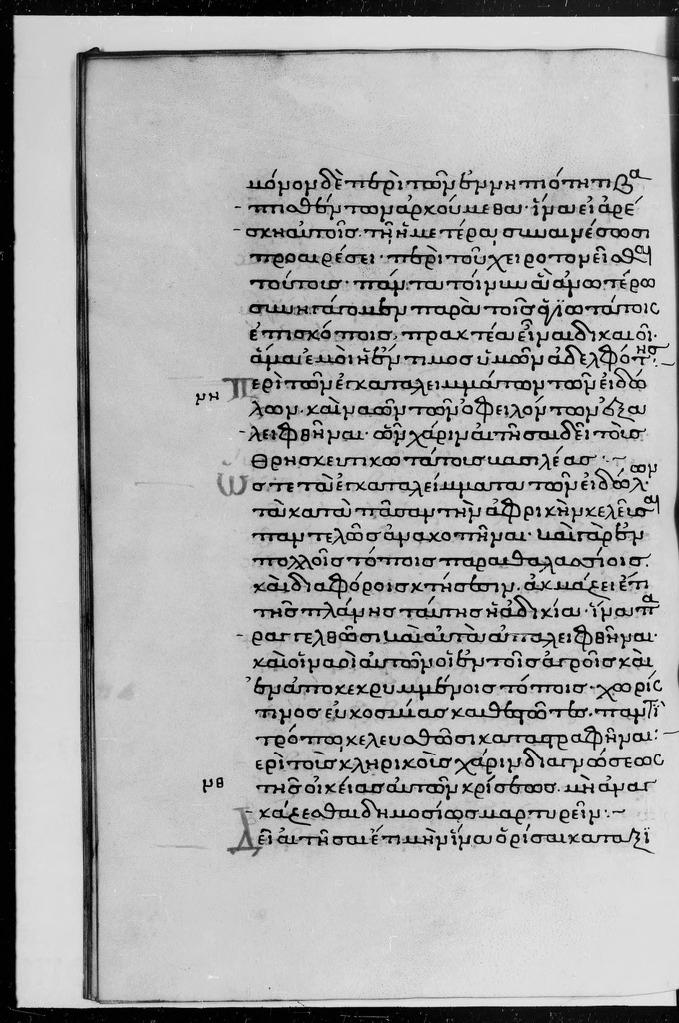 μόνον δὲ περὶ τῶν ἐν νηπιότητι βα
πτισθέντων ἀρκούμεθα· ἵνα εἰ ἀρέ
σκη αὐτοῖς τῆ ἡμετέρα συναινέσωσι
προαιρέσει· περὶ τοῦ χειροτονεῖσθαι
τούτοις· πάντα τοίνυν ἃ ἀνωτέρω
συνηγάγομεν παρὰ τοῖς ἁγιωτάτοις
ἐπισκόποις, πρακτέα εἶναι δικαιοῖ·
ἅμα ἐμοὶ ἡ ἔντιμος ὑμῶν ἀδελφότης:
μη Περὶ τῶν ἐγκαταλειμμάτων τῶν εἰδώ
λων· καὶ ναῶν τῶν ὀφειλόντων ἐξα
λειφθῆναι· ὧν χάριν αἰτῆσαι δεῖ τοὺς
θρησκευτικωτάτους βασιλέας:
Ὥστε τὰ ἐγκαταλείμματα τῶν εἰδώλων
τὰ κατὰ πᾶσαν τὴν ἀφρικὴν κελεῦσαι
παντελῶς ἀνακοπῆναι· καὶ γὰρ ἐν
πολλοῖς τόποις παραθαλασσίοις.
καὶ διαφόροις κτήσεσιν. ἀκμάζει ἔτι
τῆς πλάνης ταύτης ἡ ἀδικία· ἵνα πα
ραγγελθῶσι καὶ αὐτὰ ἀπαλειφθῆναι·
καὶ οἱ ναοὶ αὐτῶν οἱ ἐν τοῖς ἀγροῖς καὶ
ἐν ἀποκεκρυμμένοις τόποις· χωρίς
τινος εὐκοσμίας καθεστῶτες. παντὶ
τρόπω κελευσθῶσι καταστραφῆναι:
Περὶ τοῖς κληρικοῖς χάριν διαγνώσεως
μθ τῆς οἰκείας αὐτῶν κρίσεως. μὴ ἀναγ
κάζεσθαι δημοσίως μαρτυρεῖν:
Δεῖ αἰτῆσαι ἔτι μὴν ἵνα ὁρίσαι καταξι